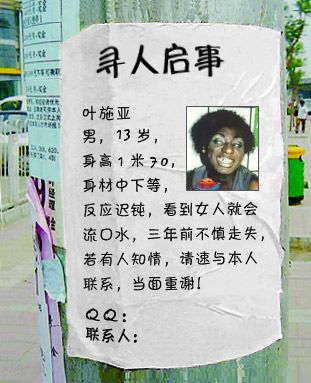 寻人启事
叶施亚
男，13岁，
身高1米70，
身材中下等，
反应迟钝，看到女人就会
流口水，三年前不慎走失，
若有人知情，请速与本人
联系，当面重谢！
QQ：
联系人：